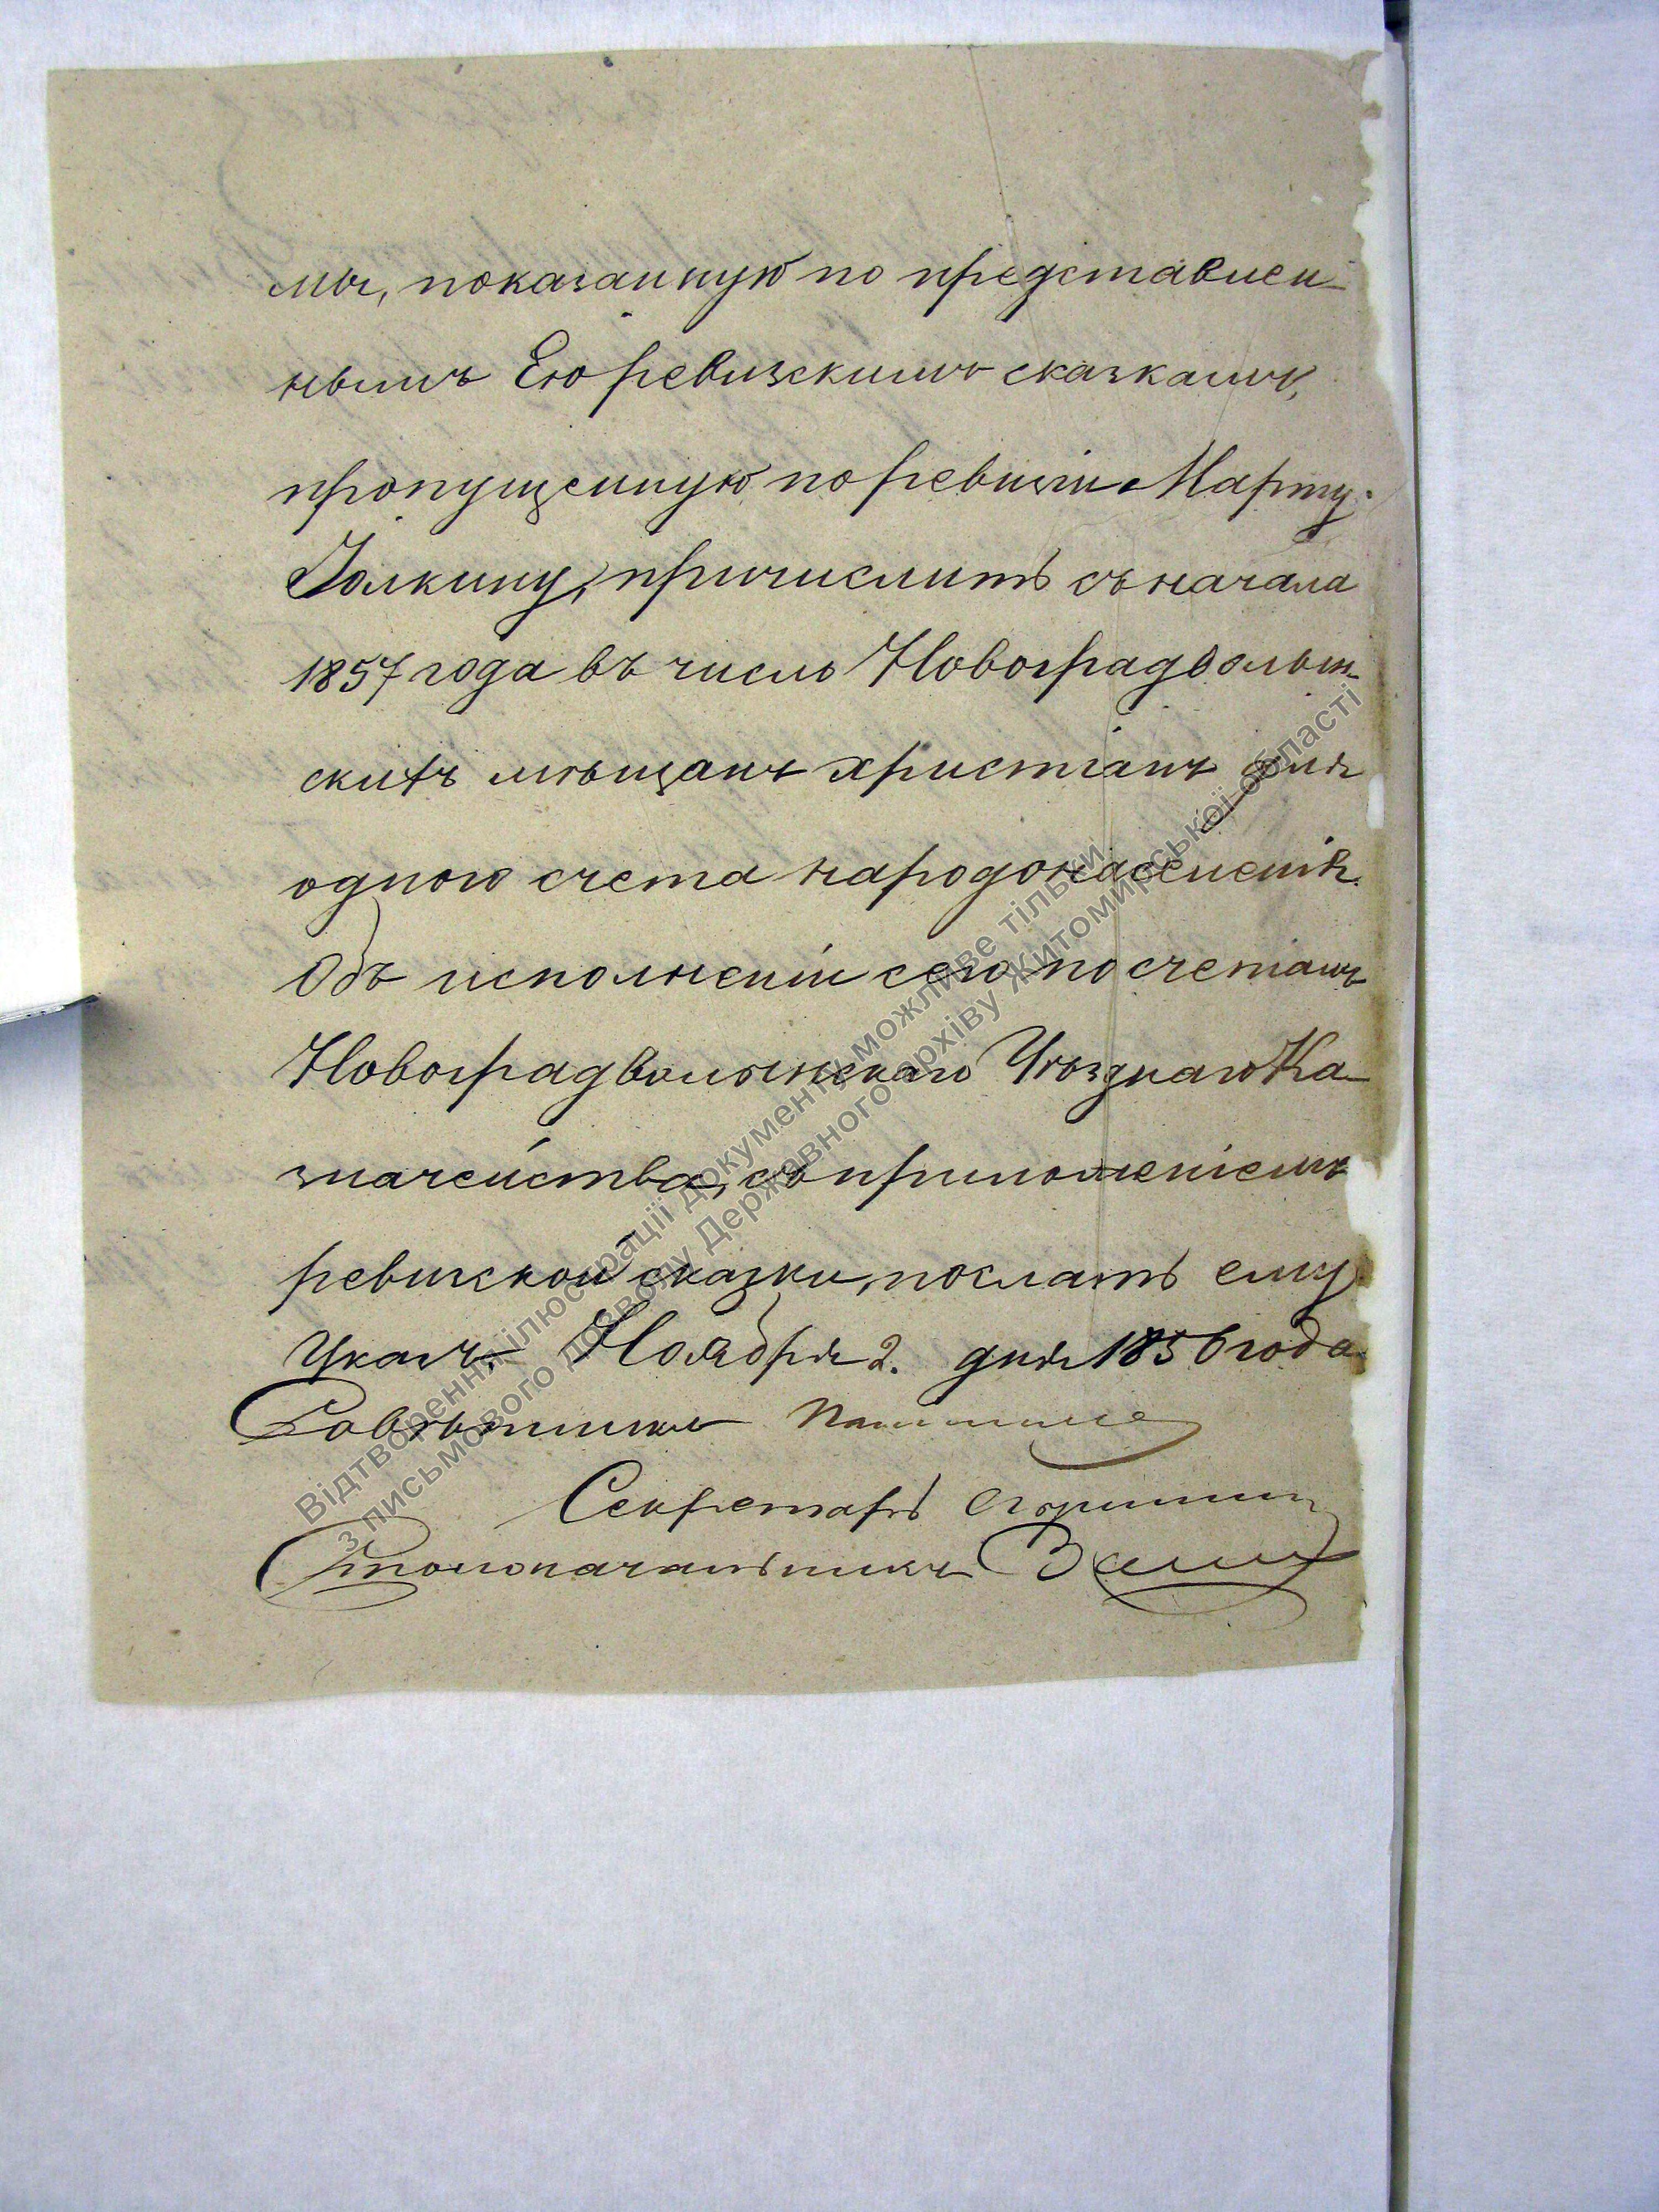 мы, показанную по представлен-
нымъ Ею ревизскимъ сказкамъ,
пропущенную по ревизіи Марту
причислить съ начала
1857 года въ число Новоградволын-
скихъ мѣщанъ христіанъ для
одного счета народонаселенія.
Объ исполненіи сего по счетамъ
Новоградволынскаго Уѣзднаго Ка-
значейства, съ приложеніемъ
ревизской сказки, послать ему
Указъ. Ноября 2. дня 1856 года
Совѣтникъ
Секретарь
Столоначальникъ
Відтворення ілюстрації документу можливе тільки
з письмового дозволу Державного архіву Житомирської області